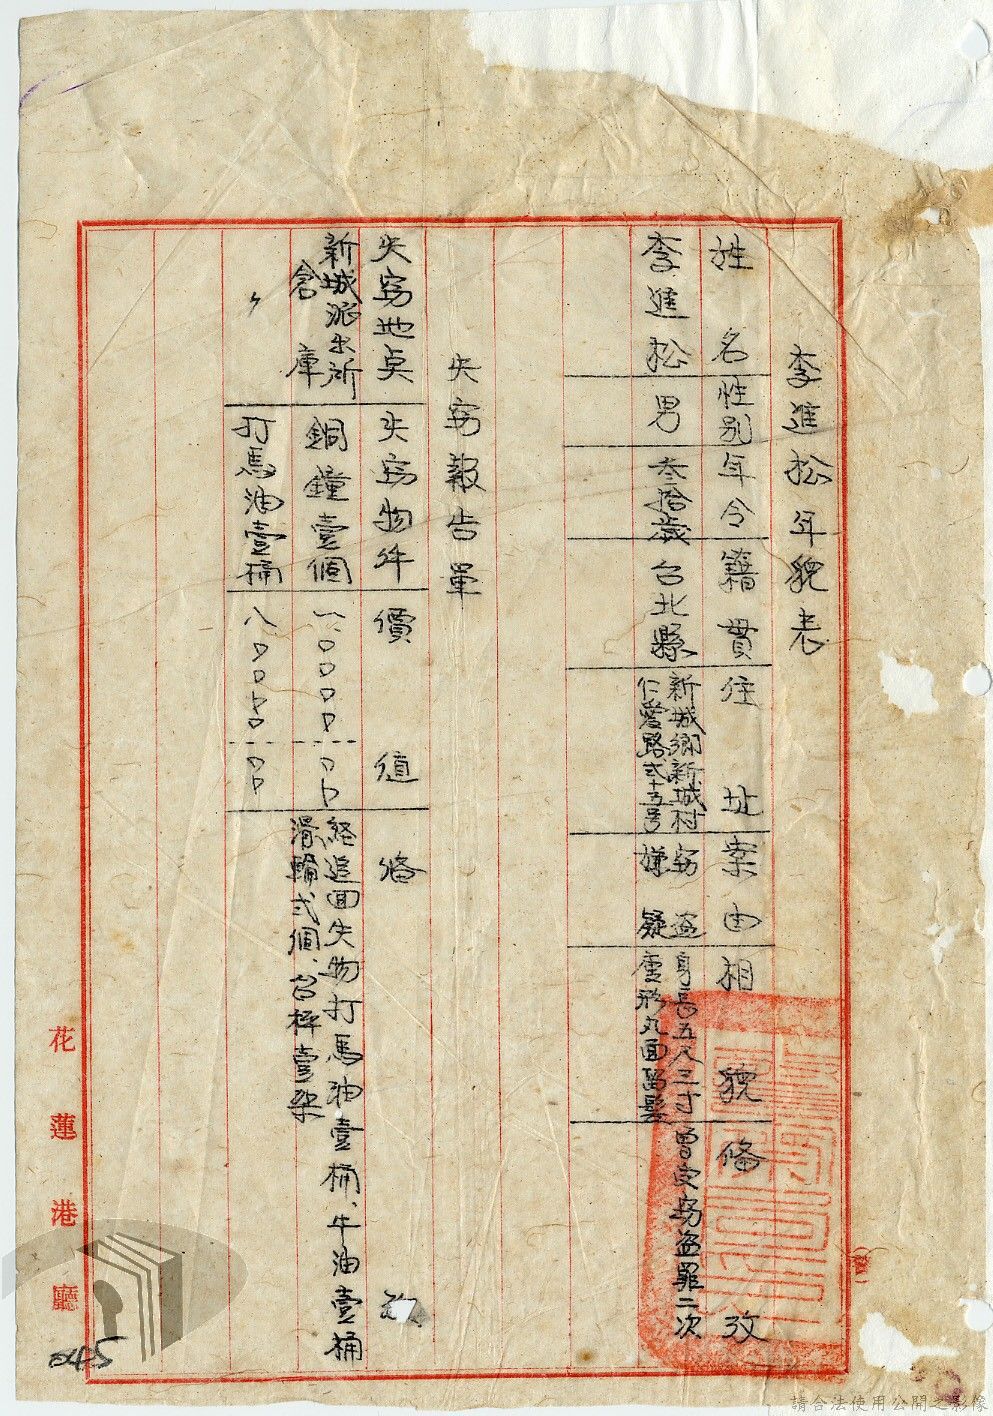 李進松年貌表
姓名 性别 年令 籍貫 住址 案由 相貌 俻攷
李進松 男 叁拾歲 台北縣 新城鄉新城村
仁愛路弍十五号 窃盗
嫌疑 身長五尺三寸
丸面 曾定窃盗罪二次
失窃報告單
失窃地奌 失窃物件 價值 俻
新城派出所
倉庫 銅鐘壹個 一〇〇〇〇〇〇
經追回失物打馬油壹桶、牛油壹桶
滑輪弍個、台秤壹架
〃 打馬油壹桶 八〇〇〇〇〇〇
花蓮港廳
請合法使用公開之影像